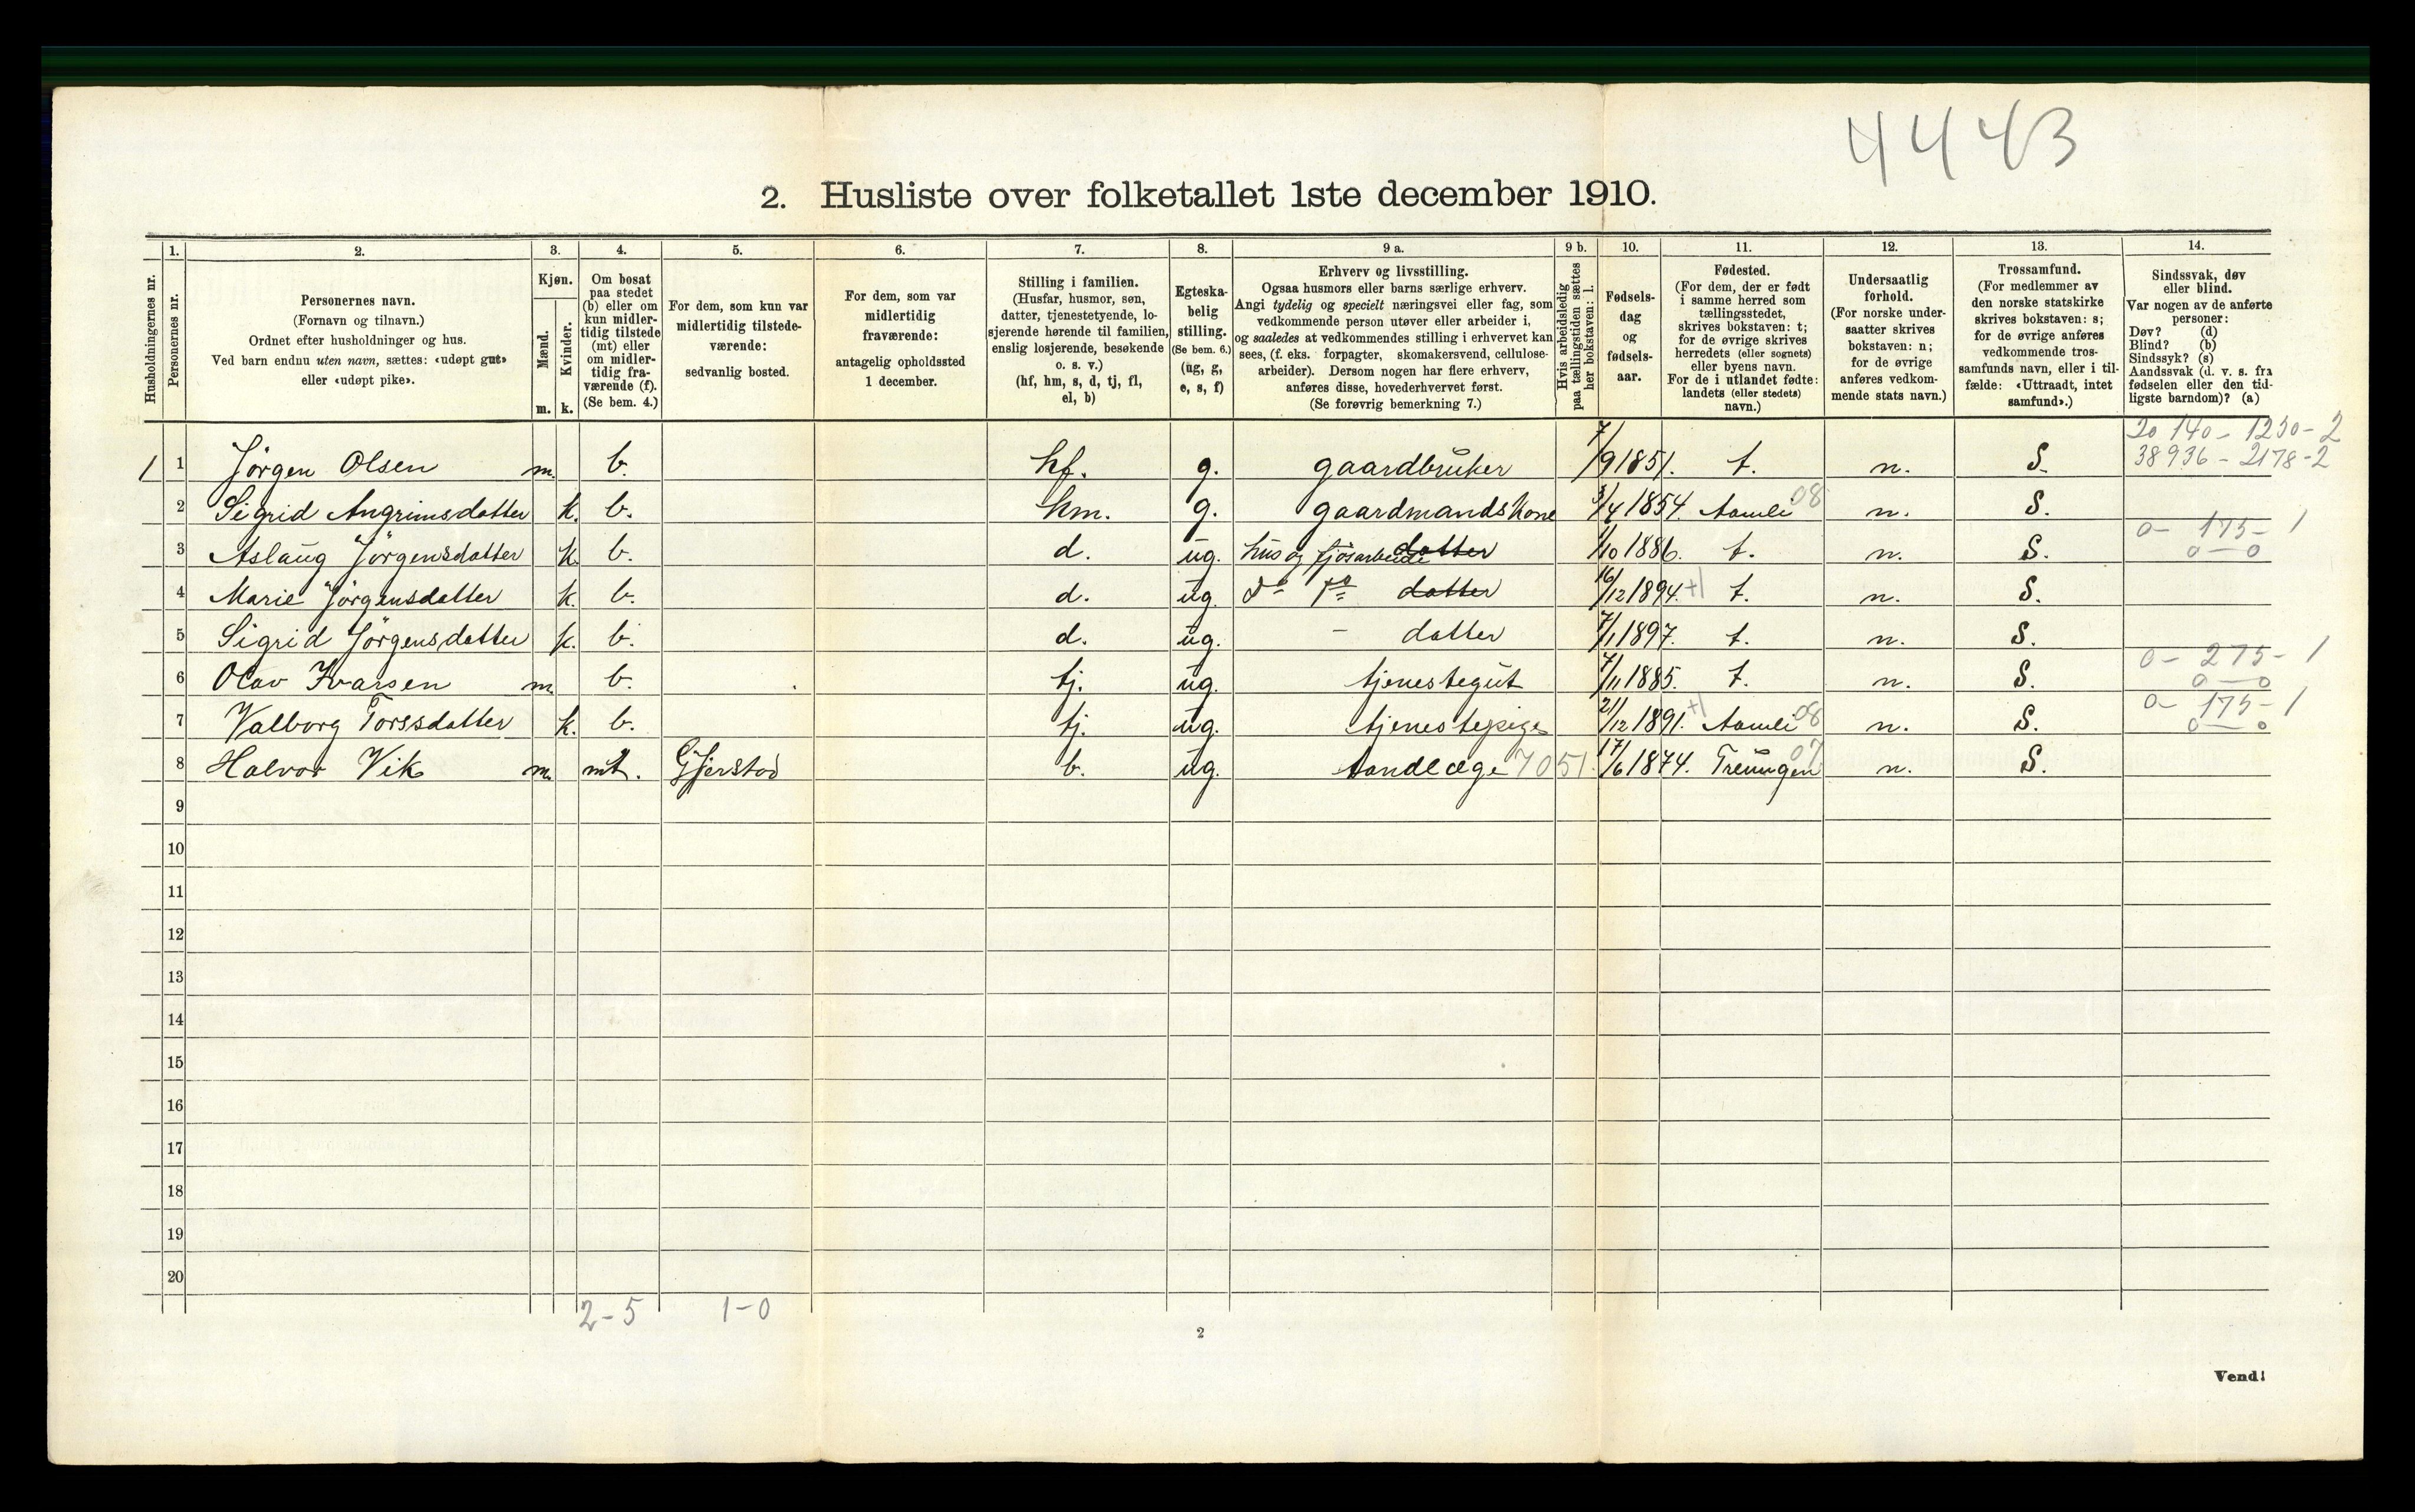 4443
2. Husliste over folketallet 1ste december 1910.
Husholdningernes nr.
1. Personernes nr.
2. Personernes navn. (Fornavn og tilnavn.) Ordnet efter husholdninger og hus. Ved barn endnu uten navn, sættes: «udøpt gut» eller «udøpt pike».
3. Kjøn. Mænd. m. Kvinder. k.
4. Om bosat paa stedet (b) eller om kun midlertidig tilstede (mt) eller om midlertidig fraværende (f). (Se bem. 4.)
5. For dem, som kun var midlertidig tilstedeværende: sedvanlig bosted.
6. For dem, som var midlertidig fraværende: antagelig opholdssted 1 december.
7. Stilling i familien. (Husfar, husmor, søn, datter, tjenestetyende, losjerende hørende til familien, enslig losjerende, besøkende o. s. v.) (hf, hm, s, d, tj, fl, el, b)
8. Egteskabelig stilling. (Se bem. 6.) (ug, g, e, s, f)
9 a. Erhverv og livsstilling. Ogsaa husmors eller barns særlige erhverv. Angi tydelig og specielt næringsvei eller fag, som vedkommende person utøver eller arbeider i, og saaledes at vedkommendes stilling i erhvervet kan sees, (f. eks. forpagter, skomakersvend, cellulosearbeider). Dersom nogen har flere erhverv, anføres disse, hovederhvervet først. (Se forøvrig bemerkning 7.)
9 b. Hvis arbeidsledig paa tællingstiden sættes her bokstaven: l.
10. Fødselsdag og fødselsaar.
11. Fødested. (For dem, der er født i samme herred som tællingsstedet, skrives bokstaven: t; for de øvrige skrives herredets (eller sognets) eller byens navn. For de i utlandet fødte: landets (eller stedets) navn.)
12. Undersaatlig forhold. (For norske undersaatter skrives bokstaven: n; for de øvrige anføres vedkommende stats navn.)
13. Trossamfund. (For medlemmer av den norske statskirke skrives bokstaven: s; for de øvrige anføres vedkommende trossamfunds navn, eller i tilfælde: «Uttraadt, intet samfund».)
14. Sindssvak, døv eller blind. Var nogen av de anførte personer: Døv? (d) Blind? (b) Sindssyk? (s) Aandssvak (d. v. s. fra fødselen eller den tidligste barndom)? (a)
20 140 - 1250 - 2
1 1 Jörgen Olsen m. b. hf. g. gaardbruker 7/9 1851. t. n. S. 38936 - 2178 - 2
2 Sigrid Angrimsdatter k. b. hm. g. gaardmandskone 3/4 1854. Aamli 08 n. S.
3 Aslaug Jörgensdatter k. b. d. ug. hus og fjösarbeide datter 1/10 1886. t. n. S. 0 - 175 - 1 0 - 0
4 Marie Jörgensdatter k. b. d. ug. do do datter 16/12 1894. +1 t. n. S.
5 Sigrid Jörgensdatter k. b. d. ug. - datter 7/1 1897. t. n. S.
6 Olav Ivarsen m. b. tj. ug. tjenestegut 7/11 1885. t. n. S. 0 - 275 - 1 0 - 0
7 Valborg Torssdatter k. b. tj. ug. tjenestepige 21/12 1891. +1 Aamli 08 n. S. 0 - 175 - 1 0 - 0
8 Halvor Vik m. mt. Gjerstad b. ug. tandlæge 7051. 17/6 1874. Treungen 07 n. S.
9
10
11
12
13
14
15
16
17
18
19
20
2-5 1-0
2
Vend!